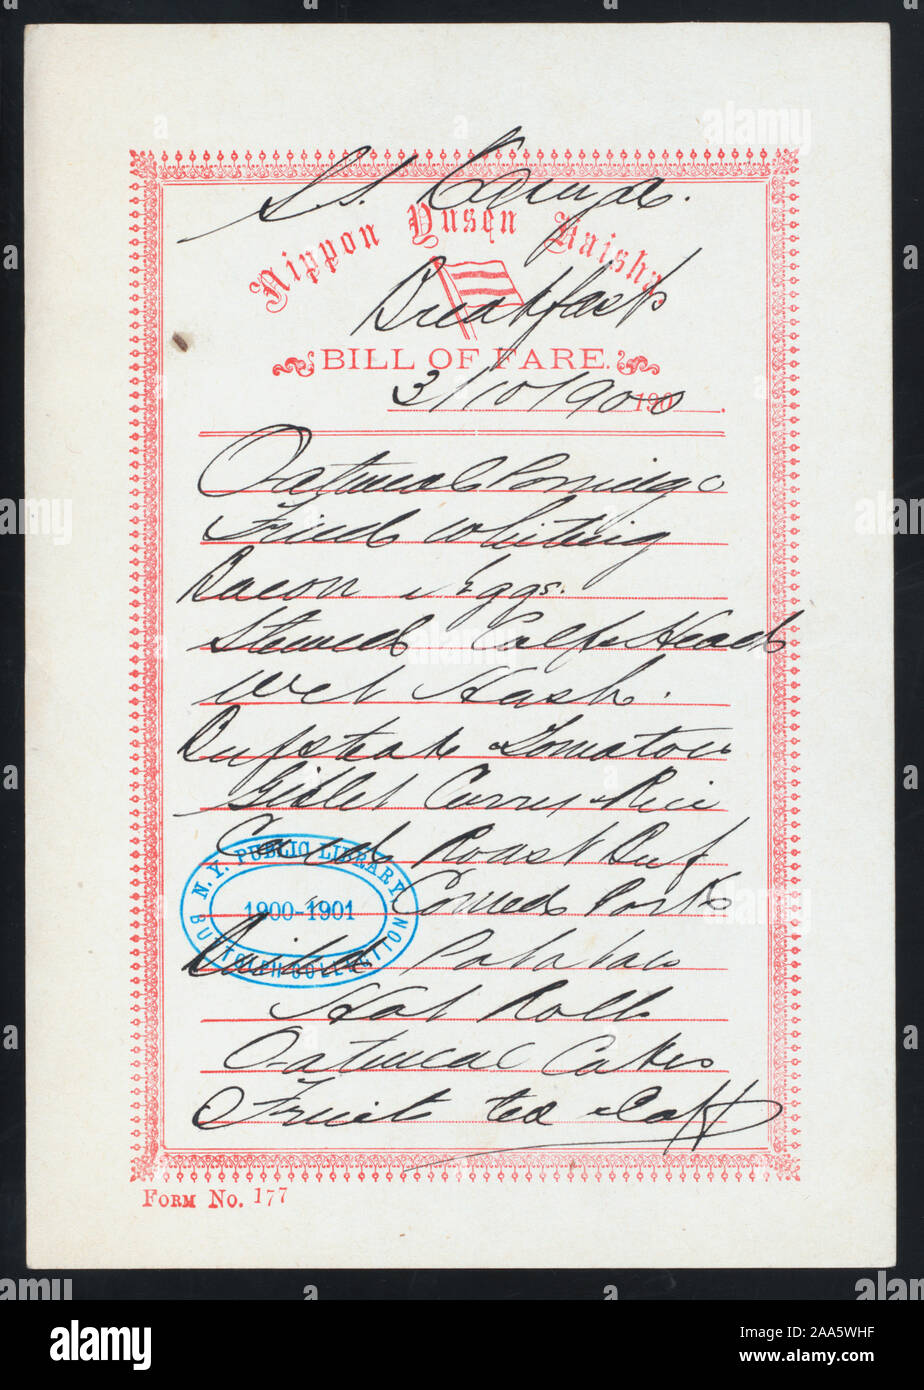 SS.
Nippon Yusen Kaisha
Breakfast
BILL OF FARE.
3/10/1900 190
Oatmeal Porridge
Fried Whiting
Bacon & Eggs.
Stewed Calf's Head
Wet Hash.
Beefsteak & Tomatoes
Giblet Curry & Rice
Cold Roast Beef
" Corned Pork
Boiled Potatoes
Hot Rolls
Oatmeal Cakes
Fruit Tea & Coffee
N.Y. PUBLIC LIBRARY
1900-1901
BUTTOLPH COLLECTION
FORM No. 177
alamy
Image ID: 2AA5WHF
www.alamy.com